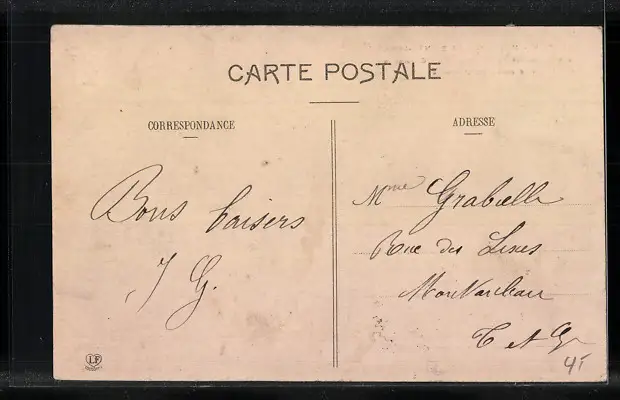 CARTE POSTALE
CORRESPONDANCE
ADRESSE
Bons baisers
J G.
Mme Grabielle
Rue des
Montauban
T et G
LF